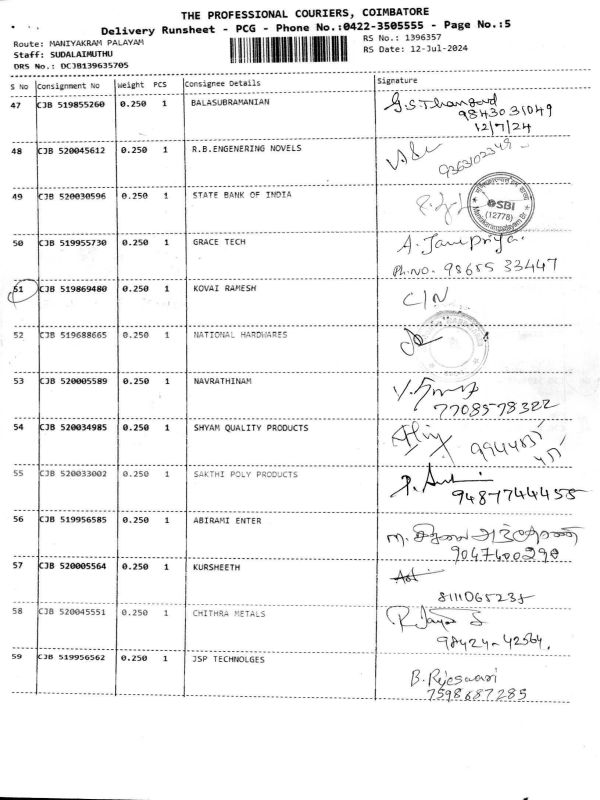 THE PROFESSIONAL COURIERS, COIMBATORE
Delivery Runsheet - PCG - Phone No.:0422-3505555 - Page No.:5
Route: MANIYAKRAM PALAYAM
RS No.: 1396357
Staff: SUDALAIMUTHU
RS Date: 12-Jul-2024
DRS No.: DCJB139635705
S No Consignment No Weight PCS Consignee Details Signature
47 CJB 519855260 0.250 1 BALASUBRAMANIAN G.S.Thangavel
9843031049
12/7/24
48 CJB 520045612 0.250 1 R.B.ENGENERING NOVELS
49 CJB 520030596 0.250 1 STATE BANK OF INDIA
SBI
(12778)
50 CJB 519955730 0.250 1 GRACE TECH A. Janepriya.
Ph.NO. 98655 33447
51 CJB 519869480 0.250 1 KOVAI RAMESH C/N
52 CJB 519688665 0.250 1 NATIONAL HARDWARES
53 CJB 520005589 0.250 1 NAVRATHINAM
7708578322
54 CJB 520034985 0.250 1 SHYAM QUALITY PRODUCTS
55 CJB 520033002 0.250 1 SAKTHI POLY PRODUCTS
9487744458
56 CJB 519956585 0.250 1 ABIRAMI ENTER
9047400290
57 CJB 520005564 0.250 1 KURSHEETH
8111065235
58 CJB 520045551 0.250 1 CHITHRA METALS
98424-42564.
59 CJB 519956562 0.250 1 JSP TECHNOLGES
B. Rajeswari
7598687285